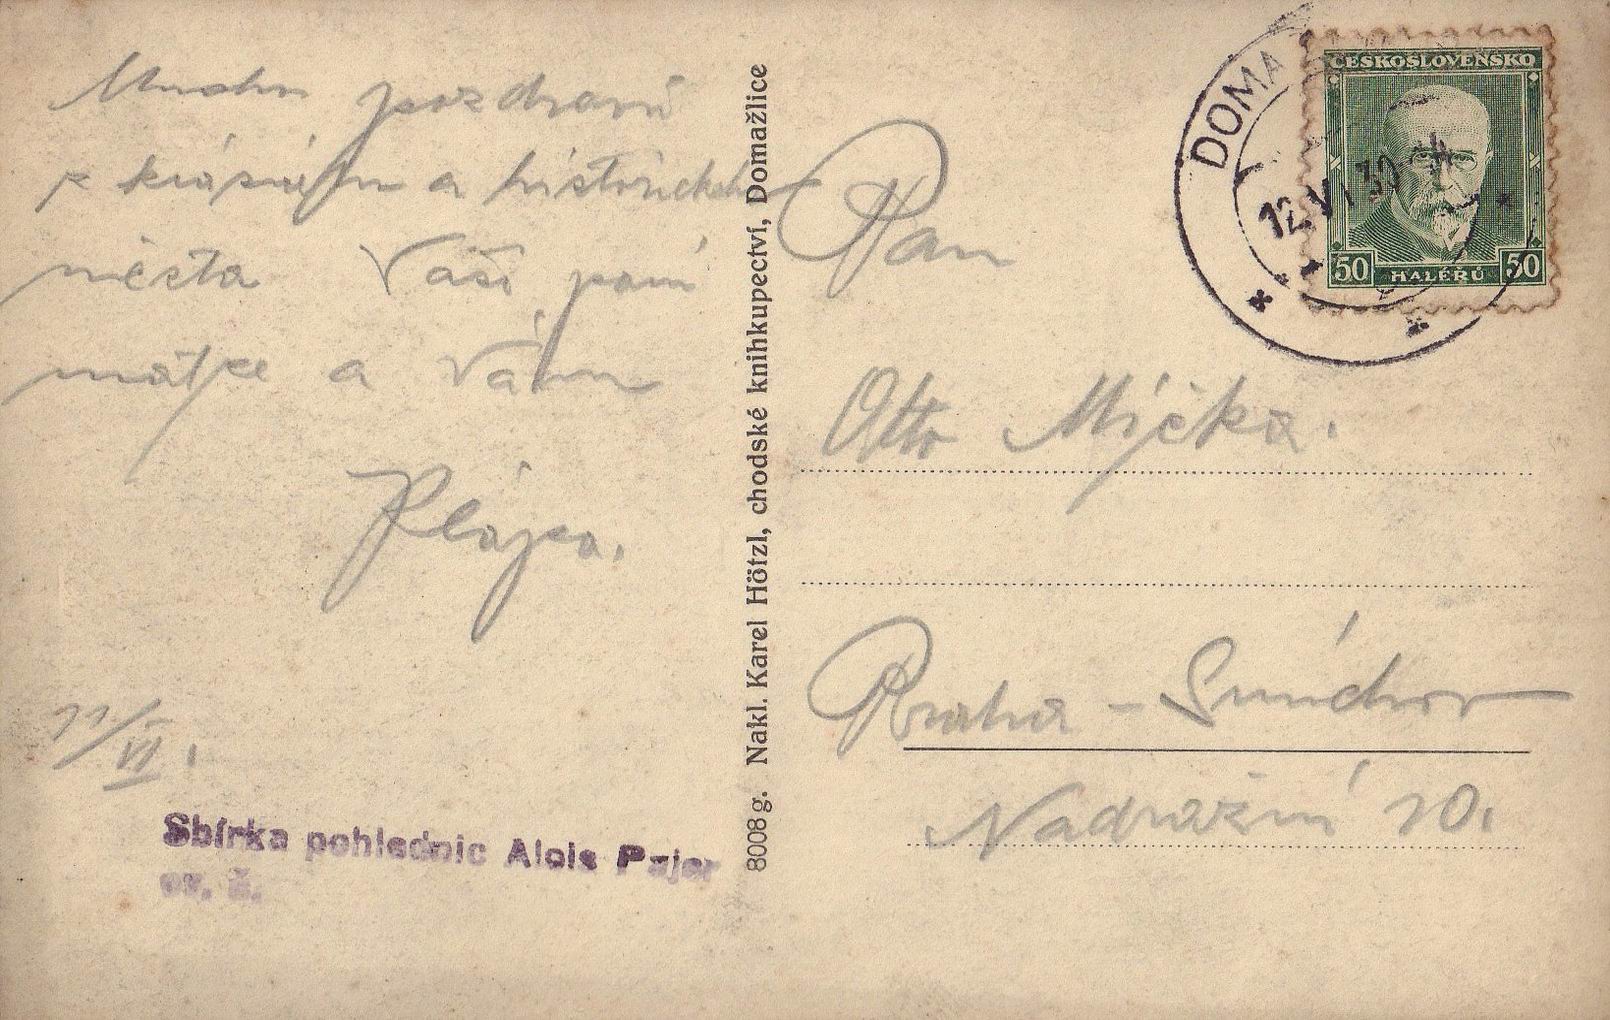 Mnoho pozdravů
z krásného a historického
města Vaší paní
matce a Vám
11/VI.
Sbírka pohlednic Alois Pajer
ev. č.
8008 g. Nakl. Karel Hötzl, chodské knihkupectví, Domažlice
DOMA
12.VI 30
ČESKOSLOVENSKO
50 HALÉŘŮ 50
Pan
Otto Mička.
Praha - Smíchov
Nádražní 10.